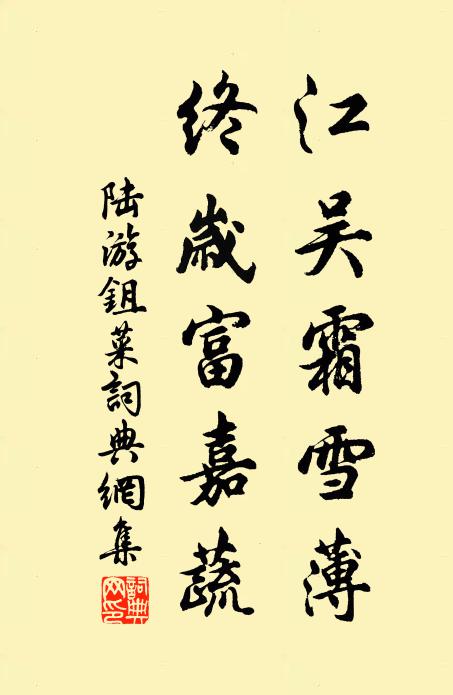 江吴霜雪薄
终歲富嘉蔬
陆游鉏菜詞典網集
詞典网印